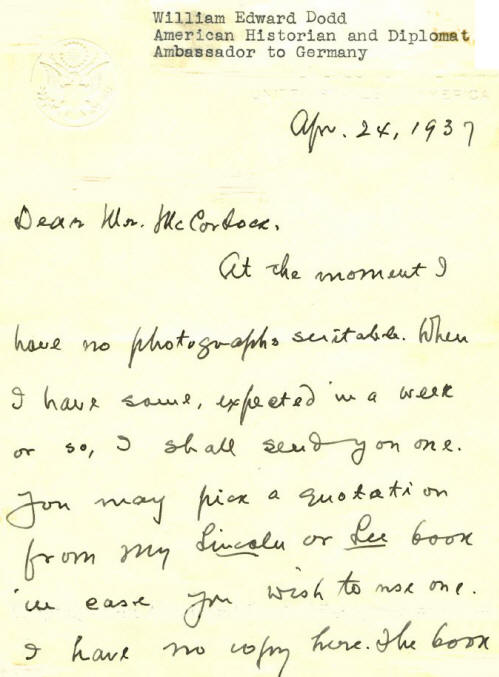 William Edward Dodd
American Historian and Diplomat
Ambassador to Germany
UNITED STATES OF AMERICA
Apr. 24, 1937
Dear Mr. McCordock,
At the moment I
have no photographs suitable. When
I have some, expected in a week
or so, I shall send you one.
You may pick a quotation
from my Lincoln or Lee book
in case you wish to use one.
I have no copy here. The book